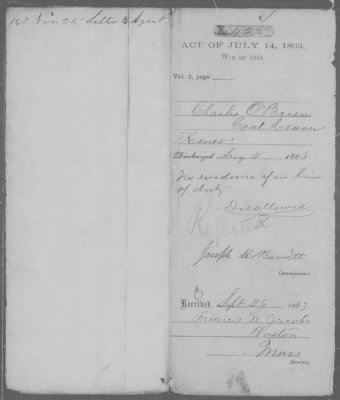 163 Nov 25 Letter to Agent
ACT OF JULY 14, 1862.
WAR OF 1861.
Vol. 3, page
Charles O'Brien
Coal Heaver
Discharged Aug 1863
No evidence of in line
of duty
Disallowed
Rejected
Joseph H Barrett
Commissioner.
Received, Sept 26 1863
Francis W. Jacobs
Boston
Mass
Attorney.